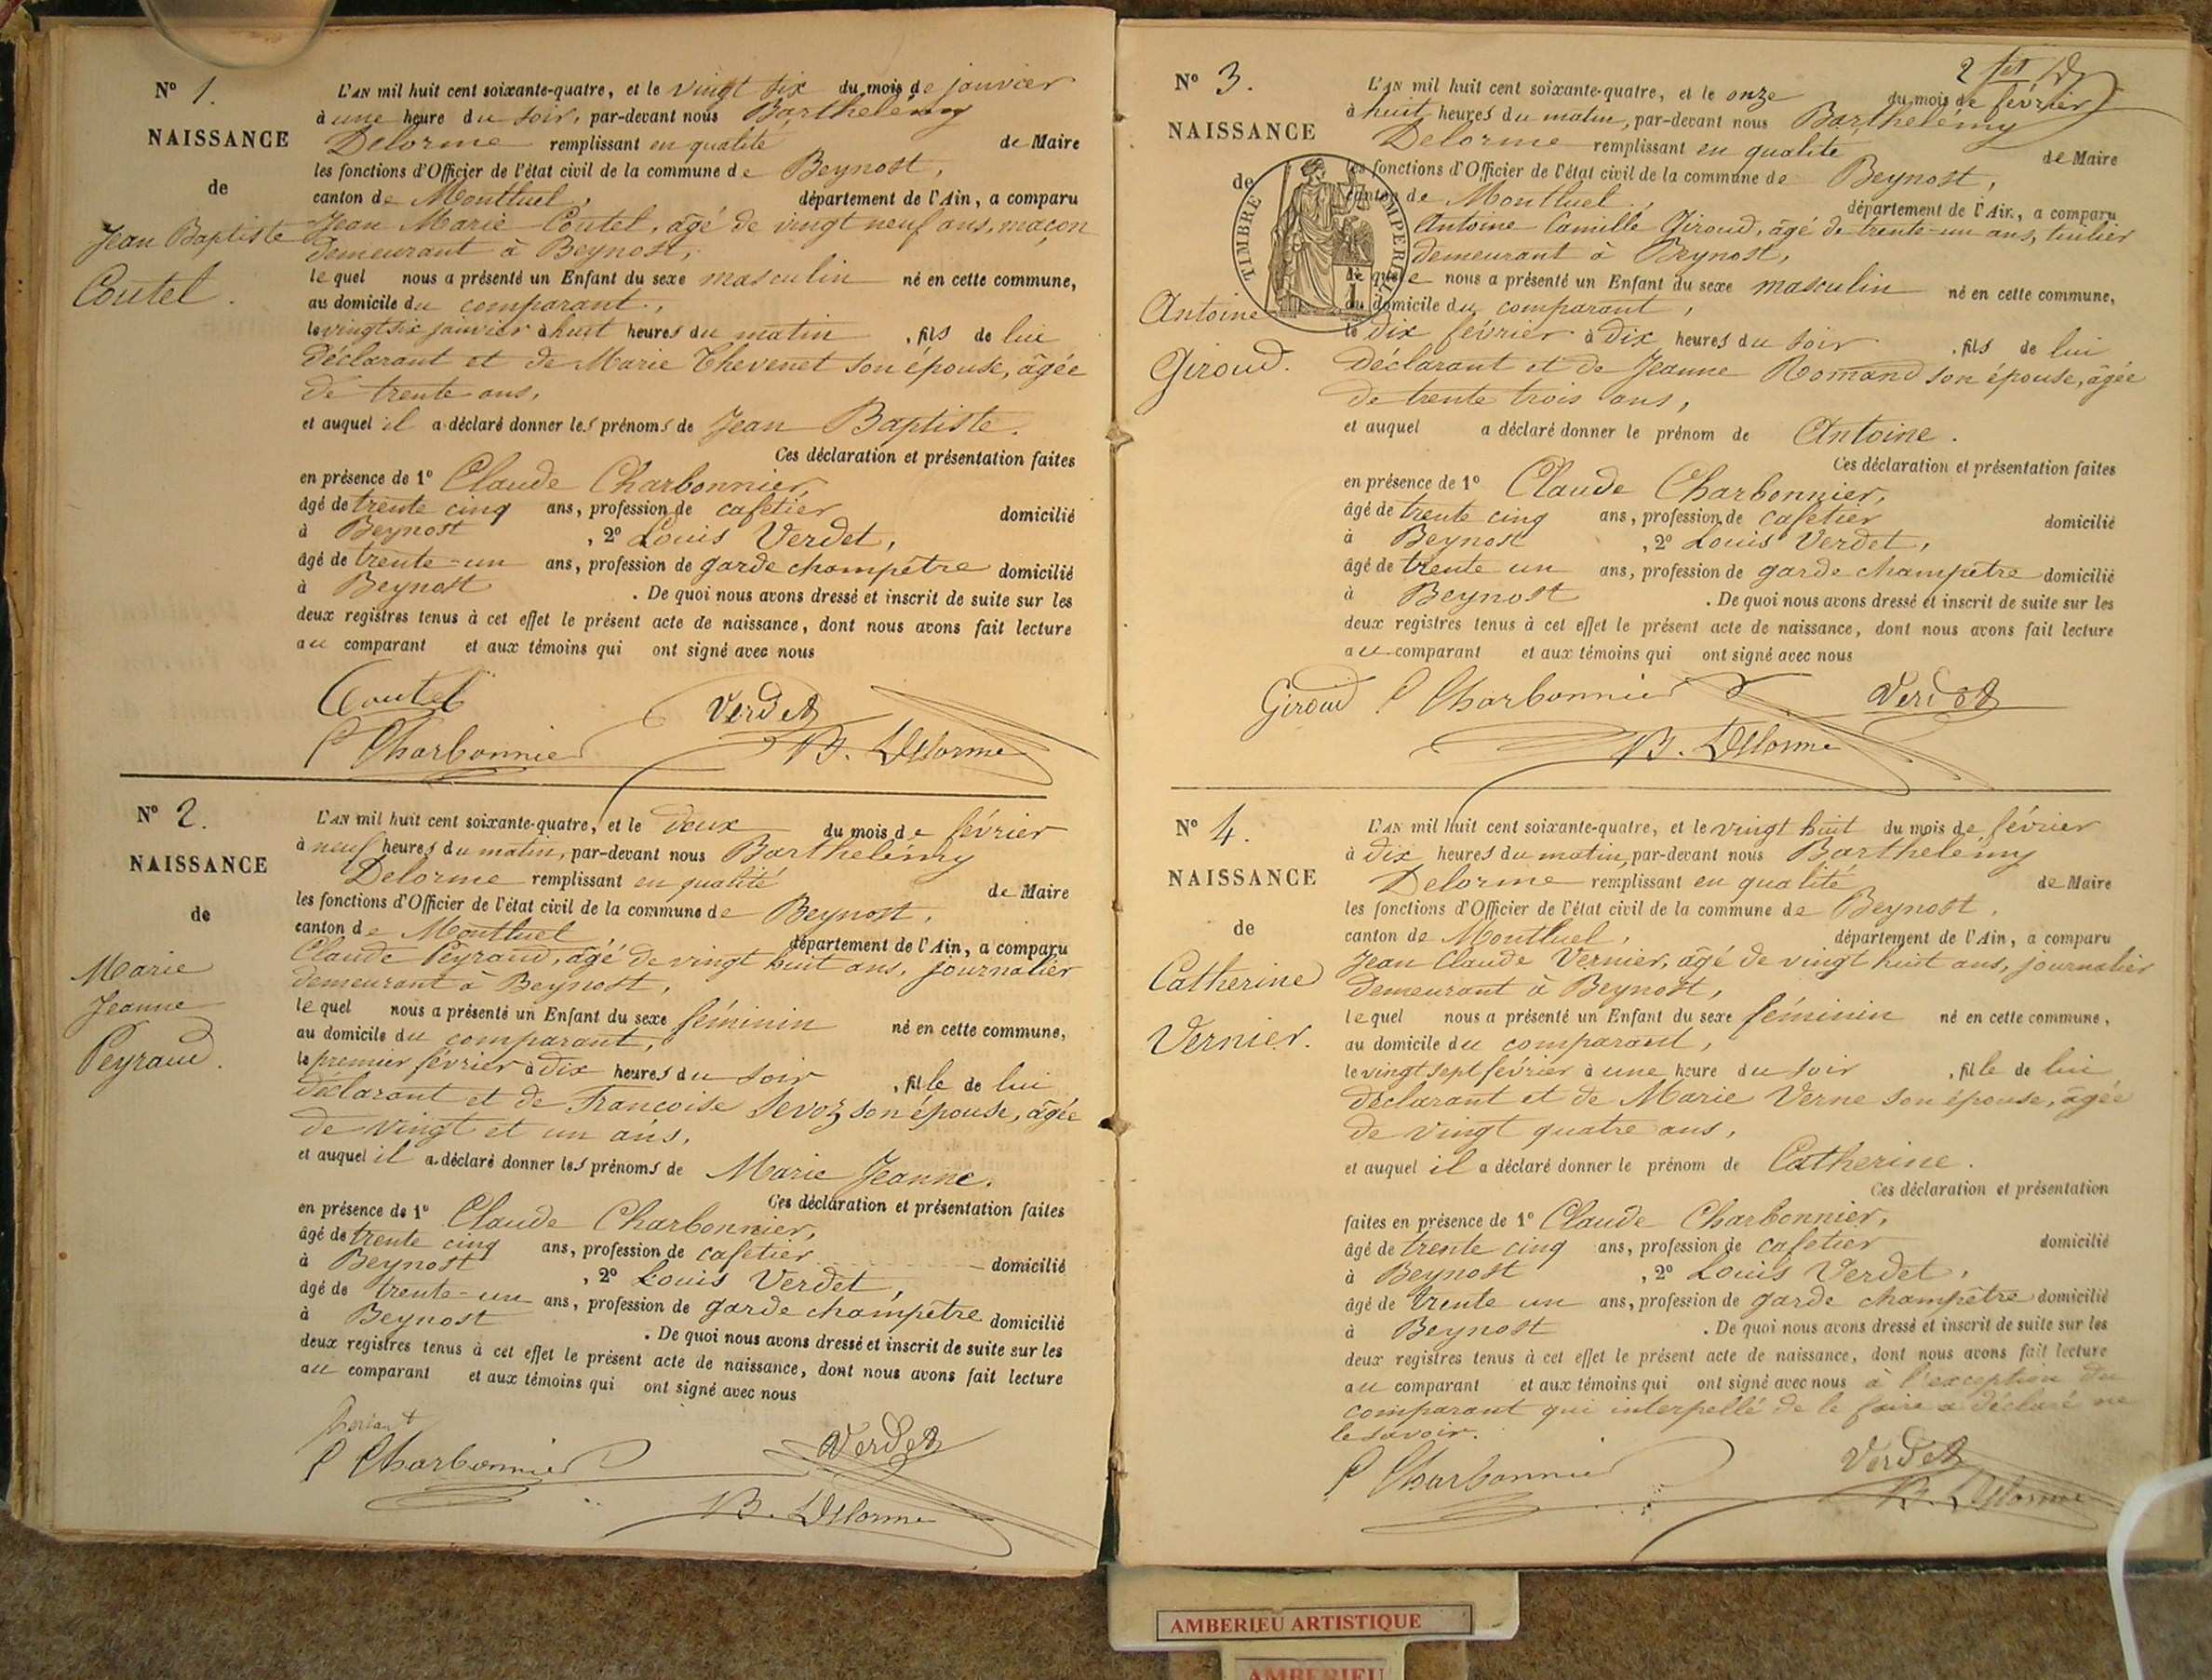 N° 1.
NAISSANCE
de
Jean Baptiste
Coutel.
L'AN mil huit cent soixante-quatre, et le vingt six du mois de janvier
à une heure du soir, par-devant nous Barthelémy
Delorme remplissant en qualité de Maire
les fonctions d'Officier de l'état civil de la commune de Beynost,
canton de Montluel, département de l'Ain, a comparu
Jean Marie Coutel, âgé de vingt neuf ans, maçon
demeurant à Beynost,
le quel nous a présenté un Enfant du sexe masculin né en cette commune,
au domicile du comparant,
le vingt six janvier à huit heures du matin, fils de lui
déclarant et de Marie Thevenet son épouse, âgée
de trente ans,
et auquel il a déclaré donner les prénoms de Jean Baptiste.
Ces déclaration et présentation faites
en présence de 1° Claude Charbonnier,
âgé de trente cinq ans, profession de cafetier domicilié
à Beynost, 2° Louis Verdet,
âgé de trente-un ans, profession de garde champêtre domicilié
à Beynost. De quoi nous avons dressé et inscrit de suite sur les
deux registres tenus à cet effet le présent acte de naissance, dont nous avons fait lecture
au comparant et aux témoins qui ont signé avec nous
Coutel Verdet
C Charbonnier B. Delorme
N° 2.
NAISSANCE
de
Marie
Jeanne
Peyraud.
L'AN mil huit cent soixante-quatre, et le deux du mois de février
à neuf heures du matin, par-devant nous Barthelémy
Delorme remplissant en qualité de Maire
les fonctions d'Officier de l'état civil de la commune de Beynost,
canton de Montluel département de l'Ain, a comparu
Claude Peyraud, âgé de vingt huit ans, journalier
demeurant à Beynost,
le quel nous a présenté un Enfant du sexe féminin né en cette commune,
au domicile du comparant,
le premier février à dix heures du soir, fille de lui
déclarant et de Francoise Sevoz son épouse, âgée
de vingt et un ans,
et auquel il a déclaré donner les prénoms de Marie Jeanne.
Ces déclaration et présentation faites
en présence de 1° Claude Charbonnier,
âgé de trente cinq ans, profession de cafetier domicilié
à Beynost, 2° Louis Verdet,
âgé de trente-un ans, profession de garde champêtre domicilié
à Beynost. De quoi nous avons dressé et inscrit de suite sur les
deux registres tenus à cet effet le présent acte de naissance, dont nous avons fait lecture
au comparant et aux témoins qui ont signé avec nous
Verdet
C Charbonnier
B. Delorme
N° 3.
NAISSANCE
de
Antoine
Giroud.
TIMBRE IMPERIAL
L'AN mil huit cent soixante-quatre, et le onze du mois de février
à huit heures du matin, par-devant nous Barthelémy
Delorme remplissant en qualité de Maire
les fonctions d'Officier de l'état civil de la commune de Beynost,
canton de Montluel, département de l'Ain, a comparu
Antoine Camille Giroud, âgé de trente-un ans, tuilier
demeurant à Beynost,
le quel nous a présenté un Enfant du sexe masculin né en cette commune,
au domicile du comparant,
le dix février à dix heures du soir, fils de lui
déclarant et de Jeanne Romand son épouse, âgée
de trente trois ans,
et auquel a déclaré donner le prénom de Antoine.
Ces déclaration et présentation faites
en présence de 1° Claude Charbonnier,
âgé de trente cinq ans, profession de cafetier domicilié
à Beynost, 2° Louis Verdet,
âgé de trente un ans, profession de garde champêtre domicilié
à Beynost. De quoi nous avons dressé et inscrit de suite sur les
deux registres tenus à cet effet le présent acte de naissance, dont nous avons fait lecture
au comparant et aux témoins qui ont signé avec nous
Giroud C Charbonnier Verdet
B. Delorme
N° 4.
NAISSANCE
de
Catherine
Vernier.
L'AN mil huit cent soixante-quatre, et le vingt huit du mois de février
à dix heures du matin, par-devant nous Barthelémy
Delorme remplissant en qualité de Maire
les fonctions d'Officier de l'état civil de la commune de Beynost,
canton de Montluel, département de l'Ain, a comparu
Jean Claude Vernier, âgé de vingt huit ans, journalier
demeurant à Beynost,
le quel nous a présenté un Enfant du sexe féminin né en cette commune,
au domicile du comparant,
le vingt sept février à une heure du soir, fille de lui
déclarant et de Marie Verne son épouse, âgée
de vingt quatre ans,
et auquel il a déclaré donner le prénom de Catherine.
Ces déclaration et présentation
faites en présence de 1° Claude Charbonnier,
âgé de trente cinq ans, profession de cafetier domicilié
à Beynost, 2° Louis Verdet,
âgé de trente un ans, profession de garde champêtre domicilié
à Beynost. De quoi nous avons dressé et inscrit de suite sur les
deux registres tenus à cet effet le présent acte de naissance, dont nous avons fait lecture
au comparant et aux témoins qui ont signé avec nous à l'exception du
comparant qui interpellé de le faire a déclaré ne
le savoir.
C Charbonnier Verdet
B. Delorme
AMBERIEU ARTISTIQUE
AMBERIEU